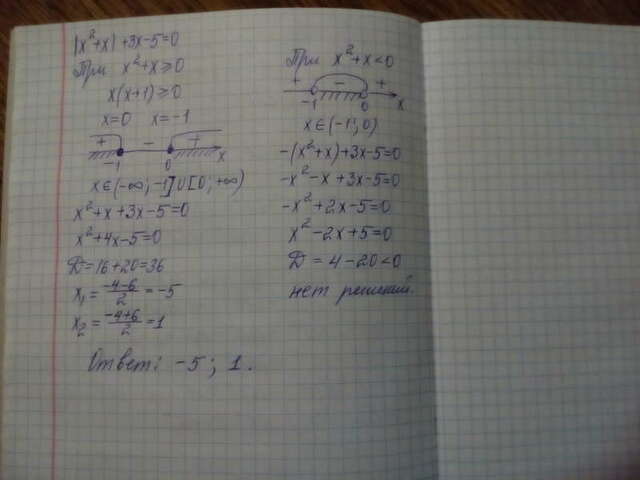 |x²+x|+3x-5=0
При x²+x≥0
x(x+1)≥0
x=0 x=-1
+ - +
-1 0 x
x∈(-∞; -1]U[0; +∞)
x²+x+3x-5=0
x²+4x-5=0
D=16+20=36
x₁=(-4-6)/2=-5
x₂=(-4+6)/2=1
При x²+x<0
+ - +
-1 0 x
x∈(-1; 0)
-(x²+x)+3x-5=0
-x²-x+3x-5=0
-x²+2x-5=0
x²-2x+5=0
D=4-20<0
нет решений.
Ответ: -5; 1.